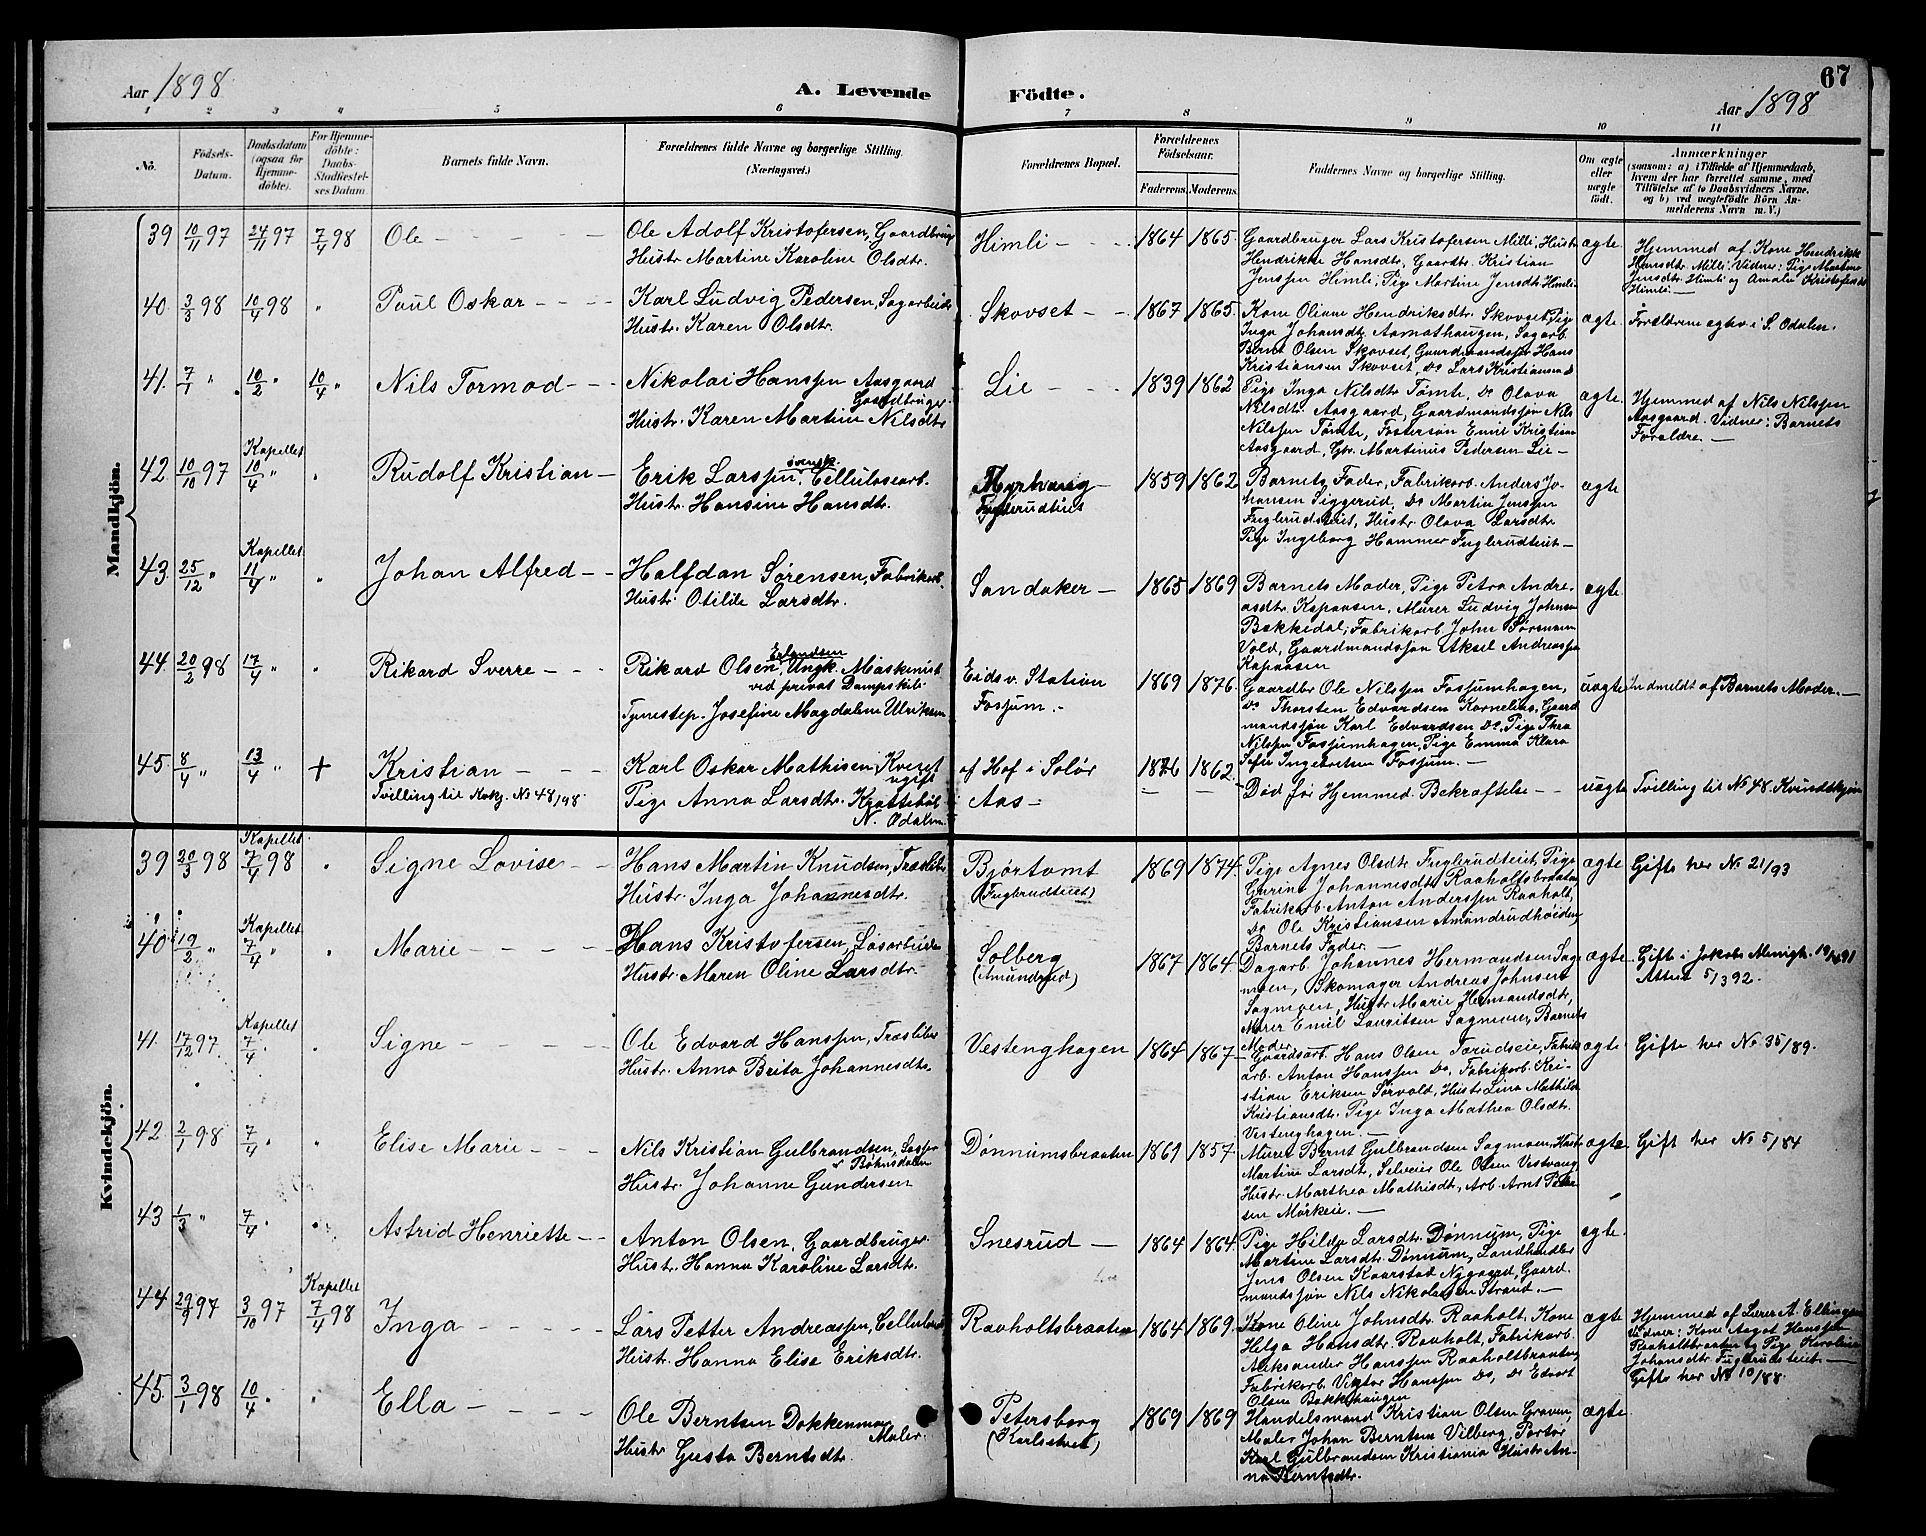 67
Aar 1898
A. Levende Fødte.
Aar 1898
1 2 3 4 5 6 7 8 9 10 11
No.
Födsels-Datum.
Daabsdatum (ogsaa for Hjemme-döbte).
For Hjemme-döbte: Daabs-Stadfæstel-ses Datum.
Barnets fulde Navn.
Forældrenes fulde Navne og borgerlige Stilling. (Næringsvei.)
Forældrenes Bopæl.
Forældrenes Födselsaar.
Faderens. Moderens.
Faddernes Navne og borgerlige Stilling.
Om ægte eller uægte født.
Anmærkninger
(saasom: a) i Tilfælde af Hjemmedaab,
hvem der har forrettet samme, med
Tilföielse af to Daabsvidners Navne.
og b) ved uægtefödte Börn An-
melderens Navn m. V.)
Mandkjön.
39 10/11 97 24/11 97 7/4 98 Ole
Ole Adolf Kristofersen, Gaardbruger
Hustr. Martine Karoline Olsdtr.
Himli 1864 1865
Gaardbruger Lars Kristofersen Milli, Hustr.
Hendrikke Hansdtr, Gaardtr. Kristian
Jenssen Himli, Pige Martine Jensdtr Himli
ægte
Hjemmed af Kone Hendrikke
Hansdtr. Milli. Vidner: Pige Martine
Jensdtr. Himli og Amalie Kristofersdtr
Himli
40. 3/3 98 10/4 98 " Paul Oskar
Karl Ludvig Pedersen, Sagarbeider
Hustr. Karen Olsdtr.
Skovset 1867 1865.
Kone Oliane Hendriksdtr. Skovset, Pige
Inga Johansdtr. Aamothaugen, Sagarb.
Bernt Olsen Skovset, Gaardmandssøn Hans
Kristiansen Skovset, Do Lars Kristiansen Do
ægte. Forældrene egtev. i S. Odalen.
41. 7/1 " 10/2 " 10/4 " Nils Tormod
Nikolai Hanssen Aasgaard
Gaardbruger
Hustr. Karen Martine Nilsdtr
Lie 1839 1862
Pige Inga Nilsdtr Tømte, Do Olava
Nilsdtr. Aasgaard, Gaardmandssøn Nils
Nilssen Tømte, Fostersøn Emil Kristian
Aasgaard, Gbr. Martinus Pedersen Lie
ægte.
Hjemmed af Nils Nilssen
Aasgaard. Vidner: Barnets
Forældre.
42. 10/10 97 Kapellet 10/4 " " Rudolf Kristian
Erik Larssen, svensk Cellulosearb.
Hustr. Hansine Hansdtr.
Fuglerudteiet 1859 1862
Barnets Fader, Fabrikarb. Anders Jo-
hansen Siggerud, Do Martin Jenssen
Fuglerudteiet, Hustr. Olava Larsdtr.
Pige Ingeborg Hammer Fuglerudteiet
ægte
43. 25/12 " Kapellet 11/4 " " Johan Alfred
Halfdan Sørensen, Fabrikarb.
Hustr. Otilde Larsdtr.
Sandaker 1865 1869
Barnets Moder, Pige Petra Andre-
asdtr. Kapaasen, Murer Ludvig Johnsen
Bekkedal, Fabrikarb. John Sørensen
Vold, Gaardmandssøn Aksel Andreassen
Kapaasen
ægte.
44. 20/2 98 17/4 " " Rikard Sverre
Rikard Olsen, Erlandsen Ungk. Maskinist
ved privat Dampskib
Tjenestep. Josefine Magdalene Ulriksen
Eidsv. Station
Fossum. 1869 1876.
Gaardbr Ole Nilssen Fossumhagen,
Do Thorsten Edvardsen Kornelius, Gaard-
mandssøn Karl Edvardsen Do, Pige Thea
Nilssen Fossumhagen, Pige Emma Klara
Sofie Ingebretsen Fossum.
uægte Indmeldt af Barnets Moder.
45. 8/4 " 13/4 " + Kristian
Tvilling til Kvkj. No 48/98
Karl Oskar Mathisen, Kveset
ugift
Pige Anna Larsdtr. Krattebøl
N. Odalen.
af Hof i Solør
Aas 1876 1862.
Død før Hjemmed. Bekræftelse
uægte Tvilling til No 48. Kvindekjøn
Kvindekjön.
39 20/3 98 Kapellet 7/4 98 " Signe Lovise
Hans Martin Knudsen, Træsliber
Hustr. Inga Johannesdtr.
Bjørtomt
(Fuglerudteiet) 1869 1874.
Pige Agnes Olsdtr. Fuglerudteiet, Pige
Gurine Johannesdtr. Raaholtsbraaten,
Fabrikarb. Anton Anderssen Raaholt,
Do Ole Kristiansen Amundrudhøiden,
Barnets Fader.
ægte Gifte her No 21/93
40. 19/2 " Kapellet 7/4 " " Marie
Hans Kristofersen, Løsarbeider
Hustr. Maren Oline Larsdtr.
Solberg
(Amundrud) 1867 1864.
Dagarb. Johannes Hermandsen Sag-
moen, Skomager Andreas Johnsen
Sagmoen, Hustr. Marie Hermandsdtr,
Murer Emil Lauritsen Sagmoen, Barnets
Moder.
ægte Gifte i Jakobs Menigh.
Attest 5/3 92.
41. 17/12 97. Kapellet 7/4 " " Signe
Ole Edvard Hanssen, Træsliber
Hustr. Anna Brita Johannesdtr.
Vestenghagen 1864 1867
Gaardsarb. Hans Olsen Tærudseie, Fabrik-
arb. Anton Hanssen Do, Fabrikarb. Kri-
stian Eriksen Sørvold, Hustr Lina Mathilde
Kristiansdtr. Pige Inga Mathea Olsdtr.
Vestenghagen.
ægte Gifte her No 35/89.
42 2/1 98 7/4 " " Elise Marie
Nils Kristian Gulbrandsen,
i Bøhnsdalen
Hustr. Johanne Gundersen
Dønnumsbraaten 1869 1857
Murer Bernt Gulbrandsen Sagmoen, Hustr
Martine Larsdtr, Selveier Ole Olsen Vestvang
Hustr. Marthea Mathisdtr, Arb. Arnt Peder-
sen Mørkeie.
ægte Gift her No 5/84
43 1/3 " 7/4 " " Astrid Henriette
Anton Olsen, Gaardbruger.
Hustr. Hanna Karoline Larsdtr.
Snesrud 1864 1864.
Pige Hilda Larsdtr. Dønnum, Pige
Martine Larsdtr. Dønnum, Landhandler
Jens Olsen Kaarstad Nygaard, Gaard-
mandssøn Nils Nikolaisen Strand.
ægte.
44 29/9 97 3/10 97 Kapellet 7/4 98 Inga
Lars Petter Andreassen, Cellulosearb.
Hustr. Hanna Elise Eriksdtr.
Raaholtsbraaten 1864 1869.
Kone Oline Johnsdtr. Raaholt, Kone
Helga Hansdtr. Raaholt, Fabrikarb.
Aleksander Hanssen Raaholtbraaten,
Fabrikarb. Viktor Hanssen Do, Do Edvart
Olsen Bakkehaugen
ægte
Hjemmed af Lærer A. Ellingsen
Vidner: Kone Aagot Hanssen
Raaholtbraaten og Pige Karoline
Johansdtr. Fuglerudteiet.
Gifte her No 10/88.
45. 3/1 98 10/4 " " Ella
Ole Berntsen Dokkenmoe
Maler.
Hustr Gusta Berntsdtr.
Petersborg
(Karlstvet) 1869 1869
Handelsmand Kristian Olsen Graven,
Maler Johan Berntsen Vilberg, Portør
Karl Gulbrandsen Kristiania, Hustr. An-
na Berntsdtr.
ægte